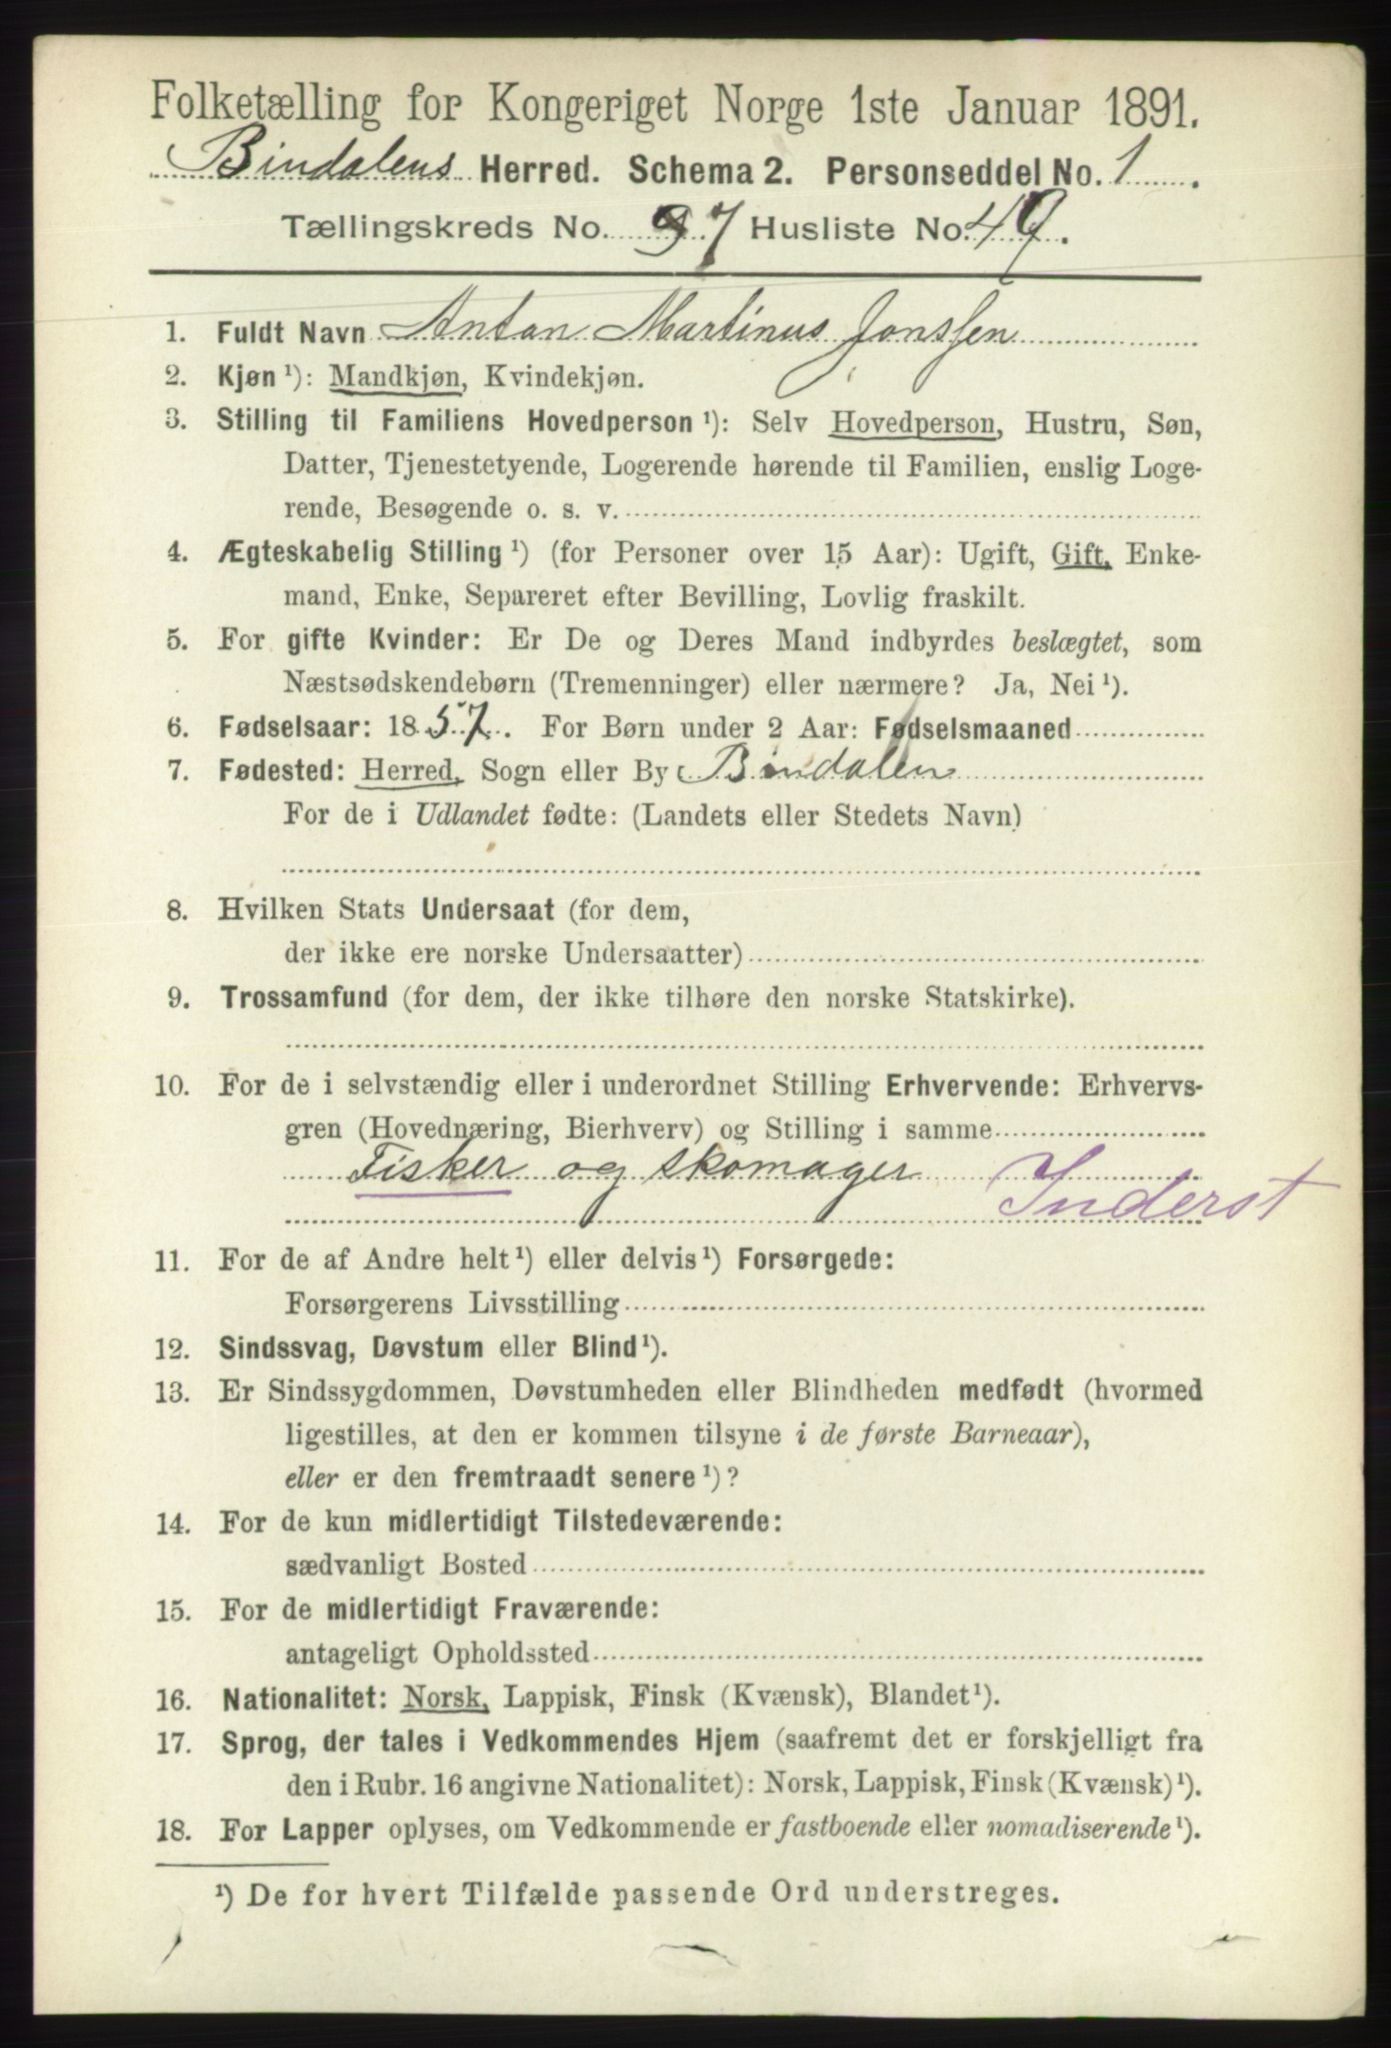 Folketælling for Kongeriget Norge 1ste Januar 1891.
Bindalens Herred. Schema 2. Personseddel No. 1.
Tællingskreds No. 7 Husliste No. 49.
1. Fuldt Navn Anton Martinus Jonssen
2. Kjøn ¹): Mandkjøn, Kvindekjøn.
3. Stilling til Familiens Hovedperson ¹): Selv Hovedperson, Hustru, Søn,
Datter, Tjenestetyende, Logerende hørende til Familien, enslig Loge-
rende, Besøgende o. s. v.
4. Ægteskabelig Stilling ¹) (for Personer over 15 Aar): Ugift, Gift, Enke-
mand, Enke, Separeret efter Bevilling, Lovlig fraskilt.
5. For gifte Kvinder: Er De og Deres Mand indbyrdes beslægtet, som
Næstsødskendebørn (Tremenninger) eller nærmere? Ja, Nei ¹).
6. Fødselsaar: 1857. For Børn under 2 Aar: Fødselsmaaned
7. Fødested: Herred, Sogn eller By Bindalen
For de i Udlandet fødte: (Landets eller Stedets Navn)
8. Hvilken Stats Undersaat (for dem,
der ikke ere norske Undersaatter)
9. Trossamfund (for dem, der ikke tilhøre den norske Statskirke).
10. For de i selvstændig eller i underordnet Stilling Erhvervende: Erhvervs-
gren (Hovednæring, Bierhverv) og Stilling i samme
Fisker og skomager Inderst
11. For de af Andre helt ¹) eller delvis ¹) Forsørgede:
Forsørgerens Livsstilling
12. Sindssvag, Døvstum eller Blind ¹).
13. Er Sindssygdommen, Døvstumheden eller Blindheden medfødt (hvormed
ligestilles, at den er kommen tilsyne i de første Barneaar),
eller er den fremtraadt senere ¹)?
14. For de kun midlertidigt Tilstedeværende:
sædvanligt Bosted
15. For de midlertidigt Fraværende:
antageligt Opholdssted
16. Nationalitet: Norsk, Lappisk, Finsk (Kvænsk), Blandet ¹).
17. Sprog, der tales i Vedkommendes Hjem (saafremt det er forskjelligt fra
den i Rubr. 16 angivne Nationalitet): Norsk, Lappisk, Finsk (Kvænsk) ¹).
18. For Lapper oplyses, om Vedkommende er fastboende eller nomadiserende ¹).
¹) De for hvert Tilfælde passende Ord understreges.